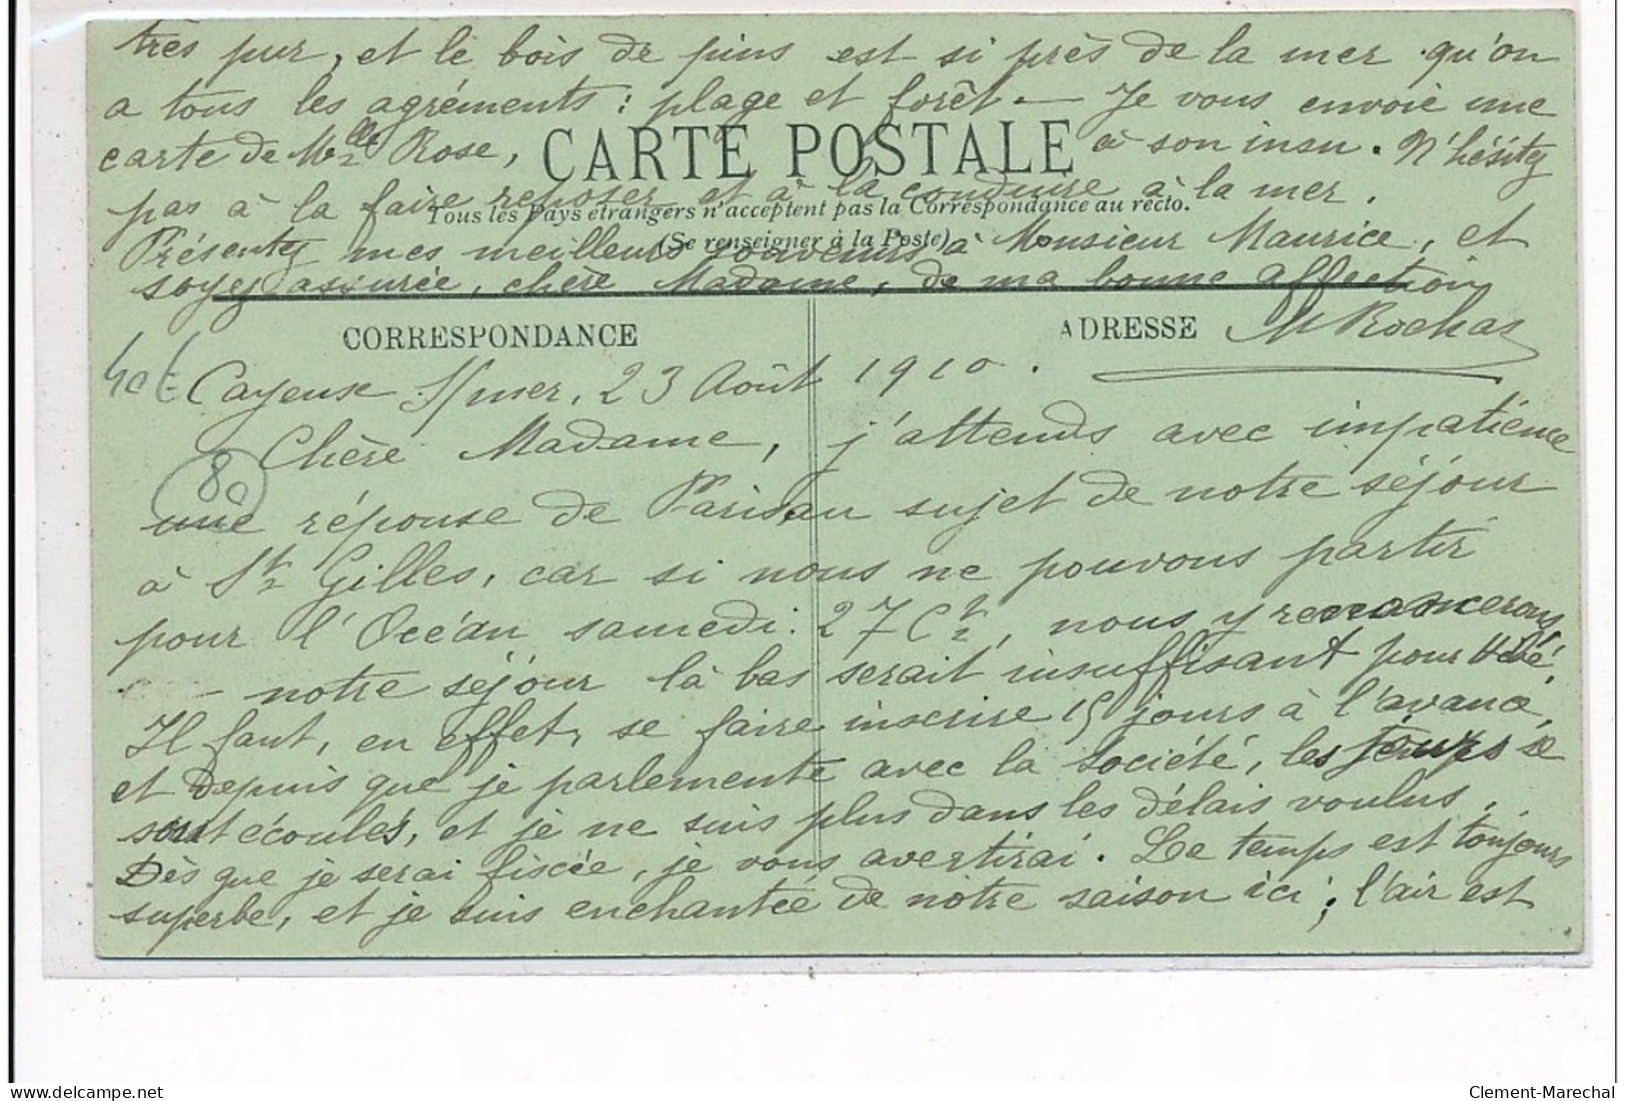 très pur, et le bois de pins est si près de la mer qu'on
a tous les agréments : plage et forêt. — Je vous envoie une
carte de Mlle Rose, à son insu. N'hésitez
CARTE POSTALE
pas à la faire reposer et à la conduire à la mer.
Tous les Pays étrangers n'acceptent pas la Correspondance au recto.
(Se renseigner à la Poste)
Présentez mes meilleurs souvenirs à Monsieur Maurice, et
soyez assurée, chère Madame, de ma bonne affection
M Rochas
CORRESPONDANCE
ADRESSE
40€
80
Cayeux s/mer, 23 Août 1910.
Chère Madame, j'attends avec impatience
une réponse de Paris au sujet de notre séjour
à St Gilles, car si nous ne pouvons partir
pour l'Océan samedi 27 Ct, nous y renoncerons,
— notre séjour là bas serait insuffisant pour Bébé.
Il faut, en effet, se faire inscrire 15 jours à l'avance,
et depuis que je parlemente avec la Société, les jours se
sont écoulés, et je ne suis plus dans les délais voulus.
Dès que je serai fixée, je vous avertirai. Le temps est toujours
superbe, et je suis enchantée de notre saison ici ; l'air est
Clement-Marechal